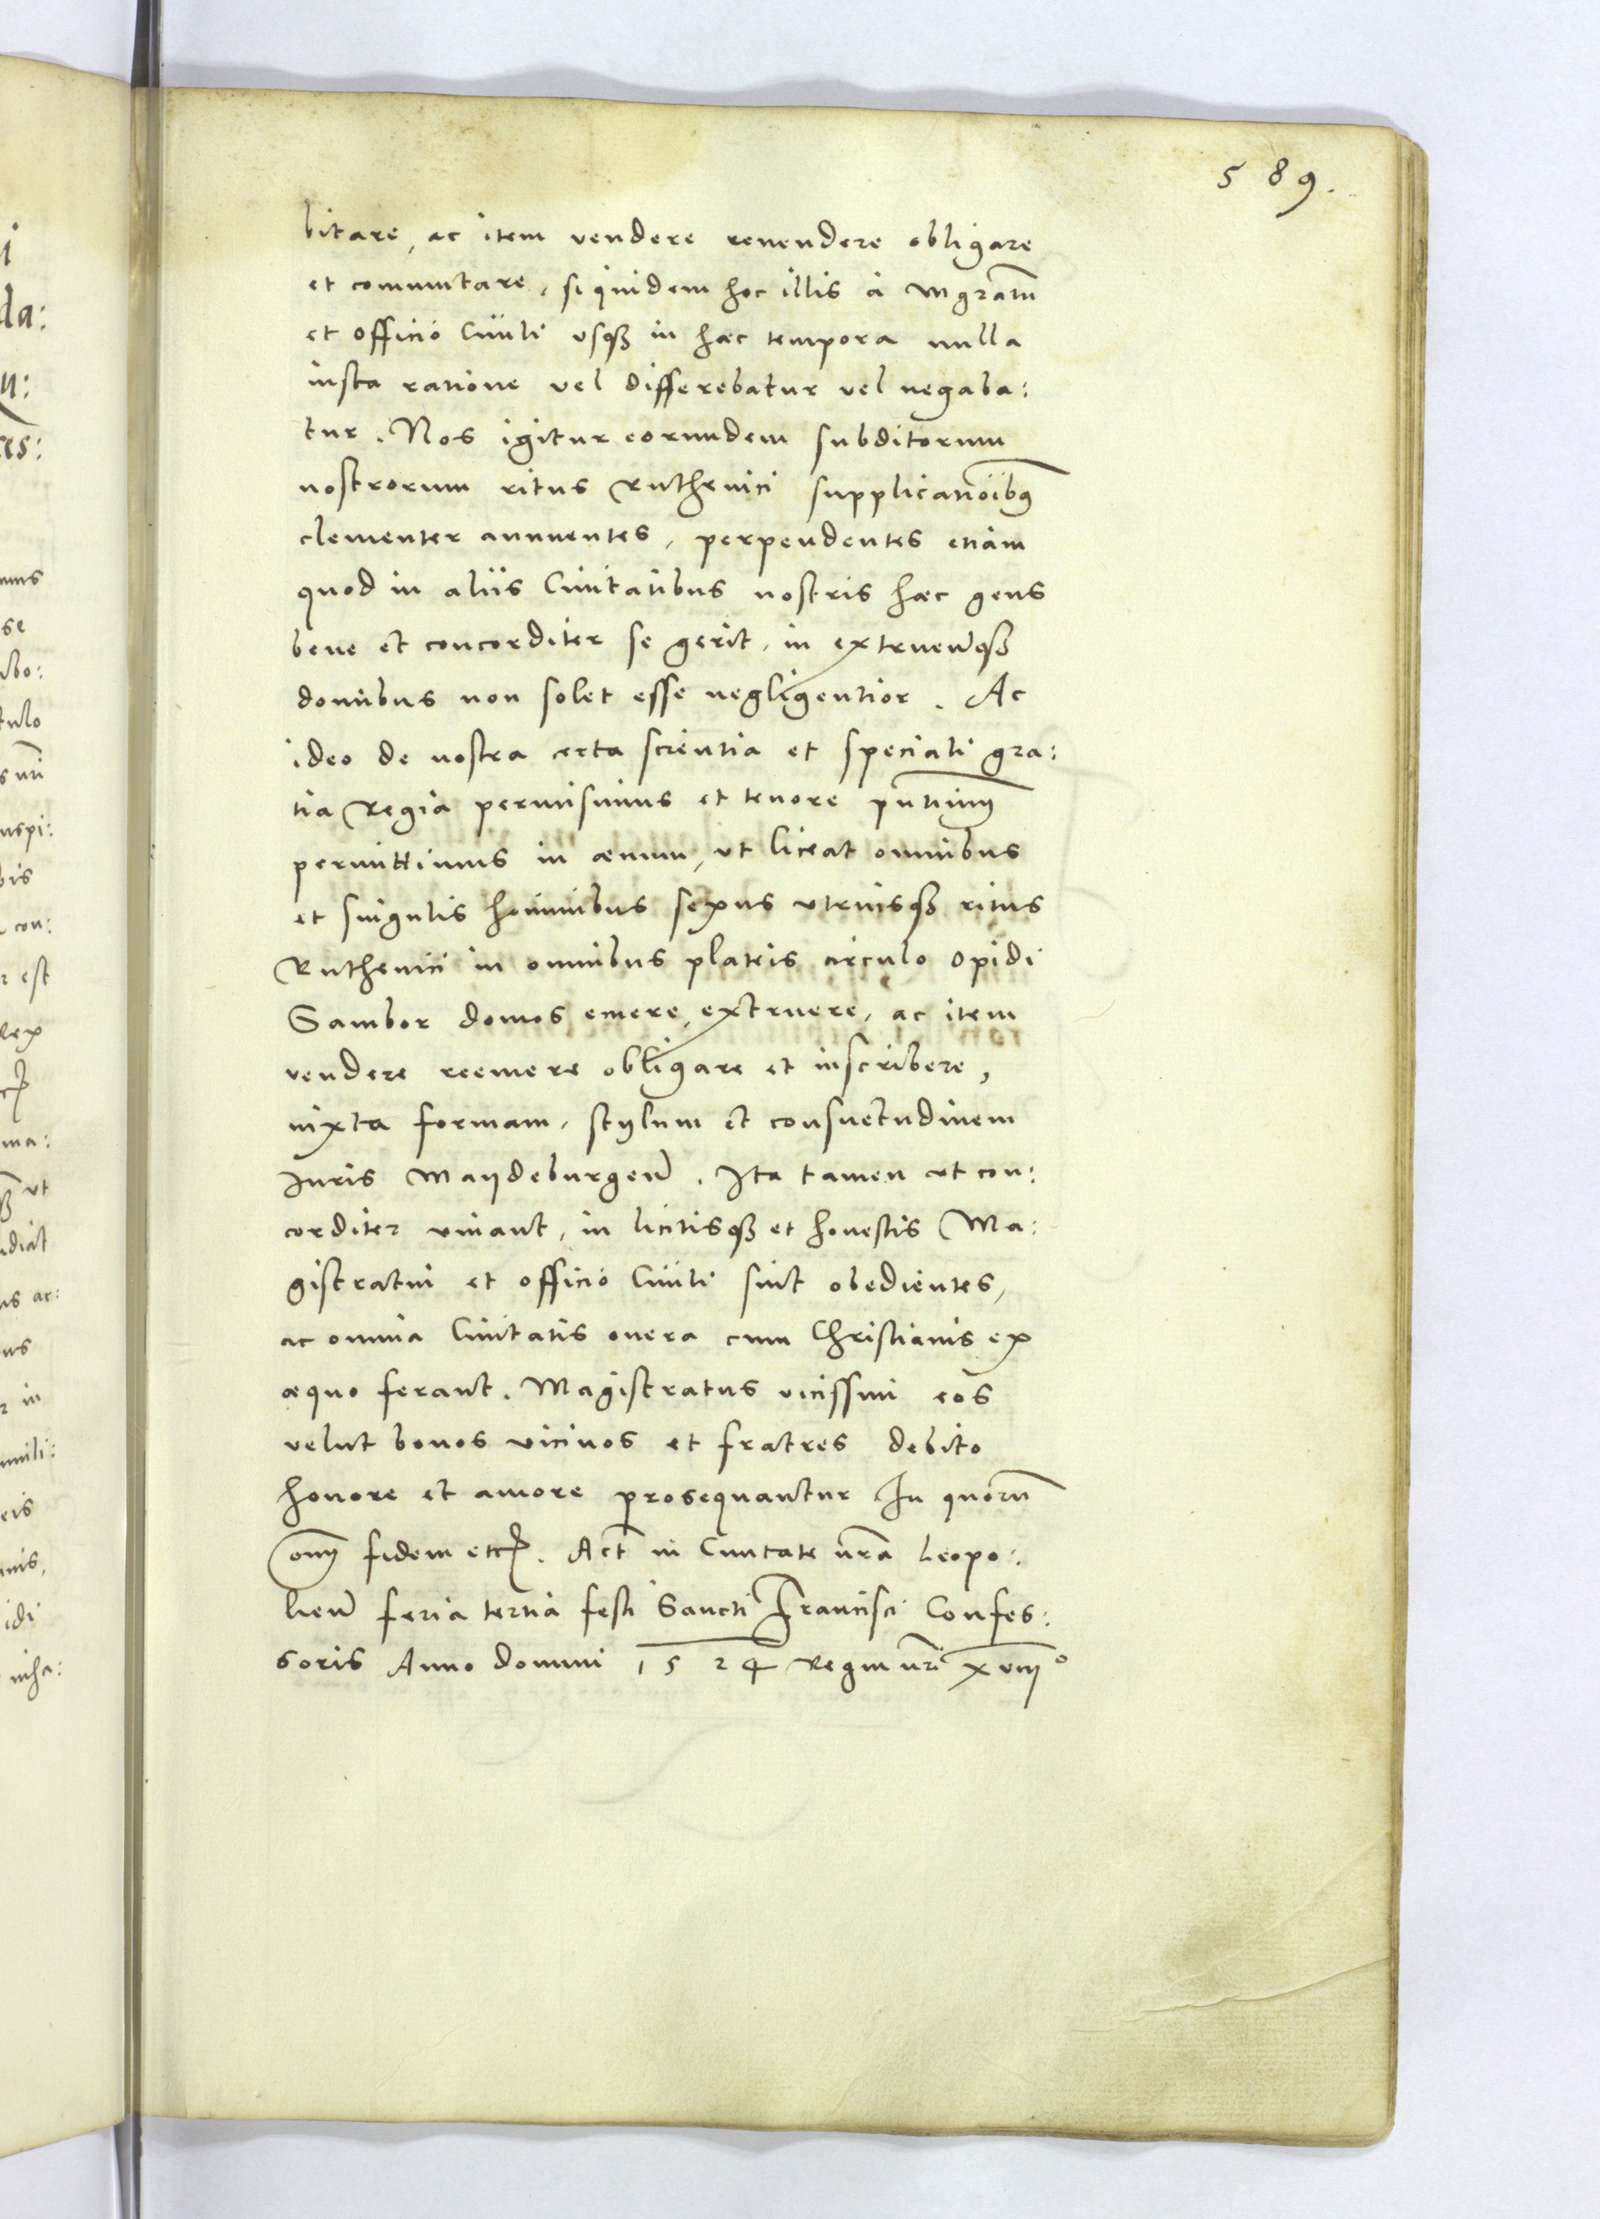 589.
bitare, ac item vendere revendere obligare
et comutare, siquidem hoc illis à Mgratu
et officio Civili usq3 in haec tempora nulla
iusta ratione vel differebatur vel negaba:
tur. Nos igitur eorundem subditorum
nostrorum ritus Ruthenici supplicationibq
clementer annuentes, perpendentes etiam
quod in aliis Civitatibus nostris haec gens
bene et concorditer se gerit, in extruendq3
domibus non solet esse negligentior. Ac
ideo de nostra certa scientia et speciali gra:
tia Regia permisimus et tenore pntium
permittimus in aevum, ut liceat omnibus
et singulis hominibus sexus utriusq3 ritus
Ruthenici in omnibus plateis circulo Opidi
Sambor domos emere, extruere, ac item
vendere reemere obligare et inscribere,
iuxta formam, stylum et consuetudinem
Iuris Maydeburgen. Ita tamen ut con:
corditer vivant, in licitisq3 et honestis Ma:
gistratui et officio Civili sint obedientes,
ac omnia Civitatis onera cum Christianis ex
aequo ferant. Magistratus vicissim eos
velut bonos vicinos et fratres debito
honore et amore prosequantur In quorum
om fidem etc. Act in Civitate nra Leopo:
lien feria tertia festi Sancti Francisci Confes:
soris Anno domini 1524 Regni nri xviii°